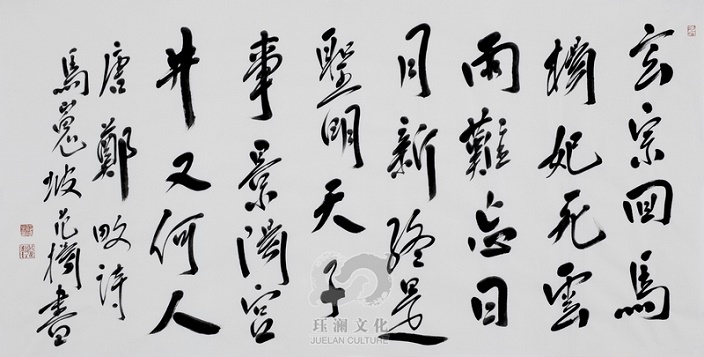 玄宗回馬
楊妃死雲
雨難忘日
月新終是
聖明天子
事景陽宮
井又何人
唐鄭畋詩
馬嵬坡范揚書
珏澜文化
JUELAN CULTURE